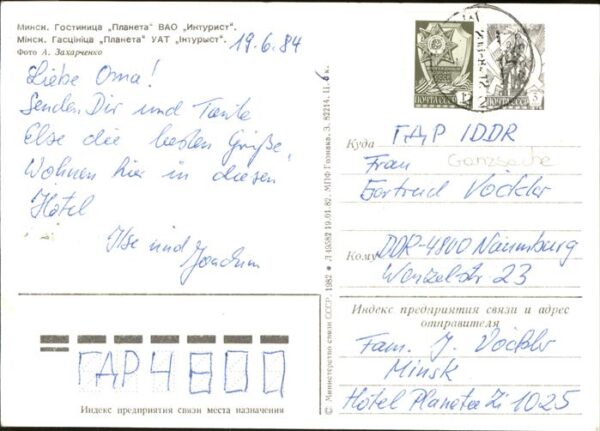 Минск. Гостиница „Планета“ ВАО „Интурист“.
Мінск. Гасцініца „Планета“ УАТ „Інтурыст“.
Фото А. Захарченко
19.6.84
Liebe Oma!
Senden Dir und Tante
Else die besten Grüße.
Wohnen hier in diesem
Hotel
Ilse und Joachim
ПОЧТА СССР
1к
ПОЧТА СССР
3
Куда
ГДР / DDR
Frau
Ganzsache
Gertrud Vöckler
Кому
DDR-4800 Naumburg
Wenzelstr 23
Индекс предприятия связи и адрес
отправителя
Fam. J. Vöckler
Minsk
Hotel Planeta Zi 1025
ГДР 4800
Индекс предприятия связи места назначения
© Министерство связи СССР. 1982 ● Л 49582 19.01.82. МПФ Гознака. З. 82214. Ц. 6 к.